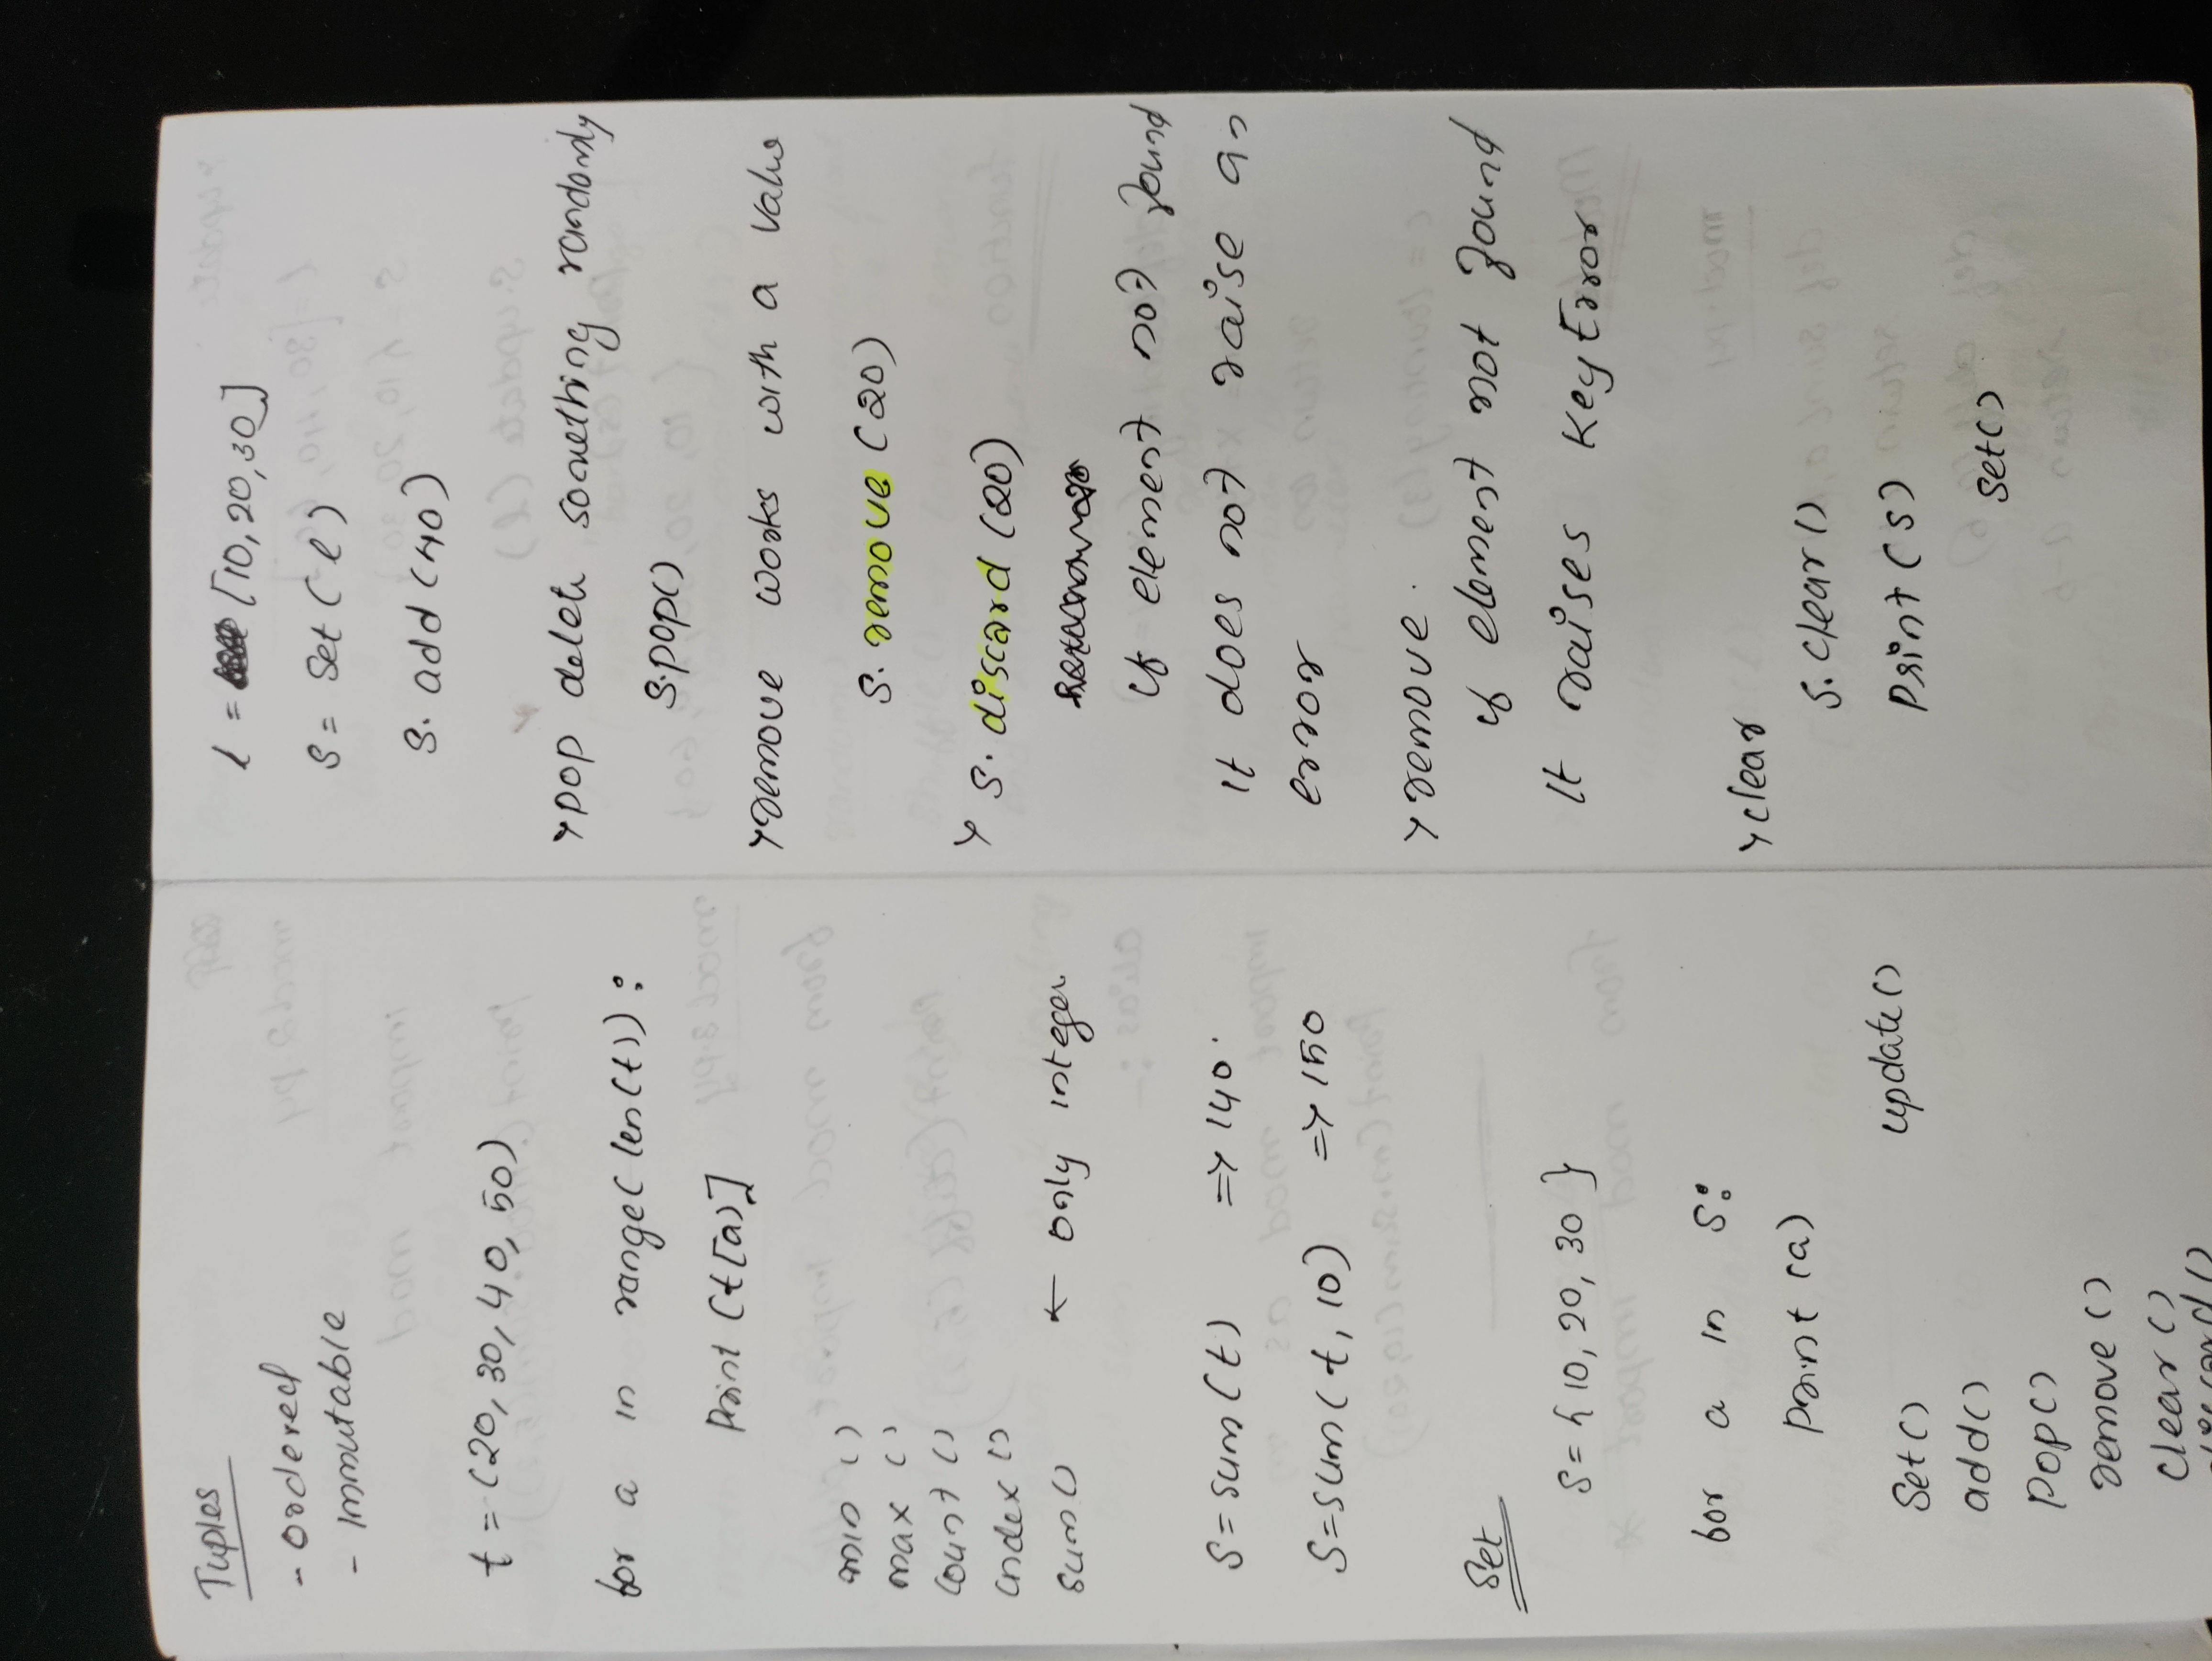 Tuples
- Ordered
- Immutable
t = (20, 30, 40, 50)
for a in range(len(t)):
Print (t[a)]
min ()
max ()
count ()
index ()
sum() ← only integer
S = sum(t) => 140
S = sum(t, 10) => 150
Set
S = { 10, 20, 30 }
for a in S:
Print (a)
Set() update()
add()
POP()
remove ()
clear ()
discard ()
l = [10, 20, 30]
S = Set (l)
S. add (40)
> pop delete something randomly
S.pop()
> remove works with a value
S. remove (20)
> S. discard (20)
if element not found
It does not raise an
error
> remove.
if element not found
It raises KeyError
> clear
S. clear ()
Print (S)
Set()